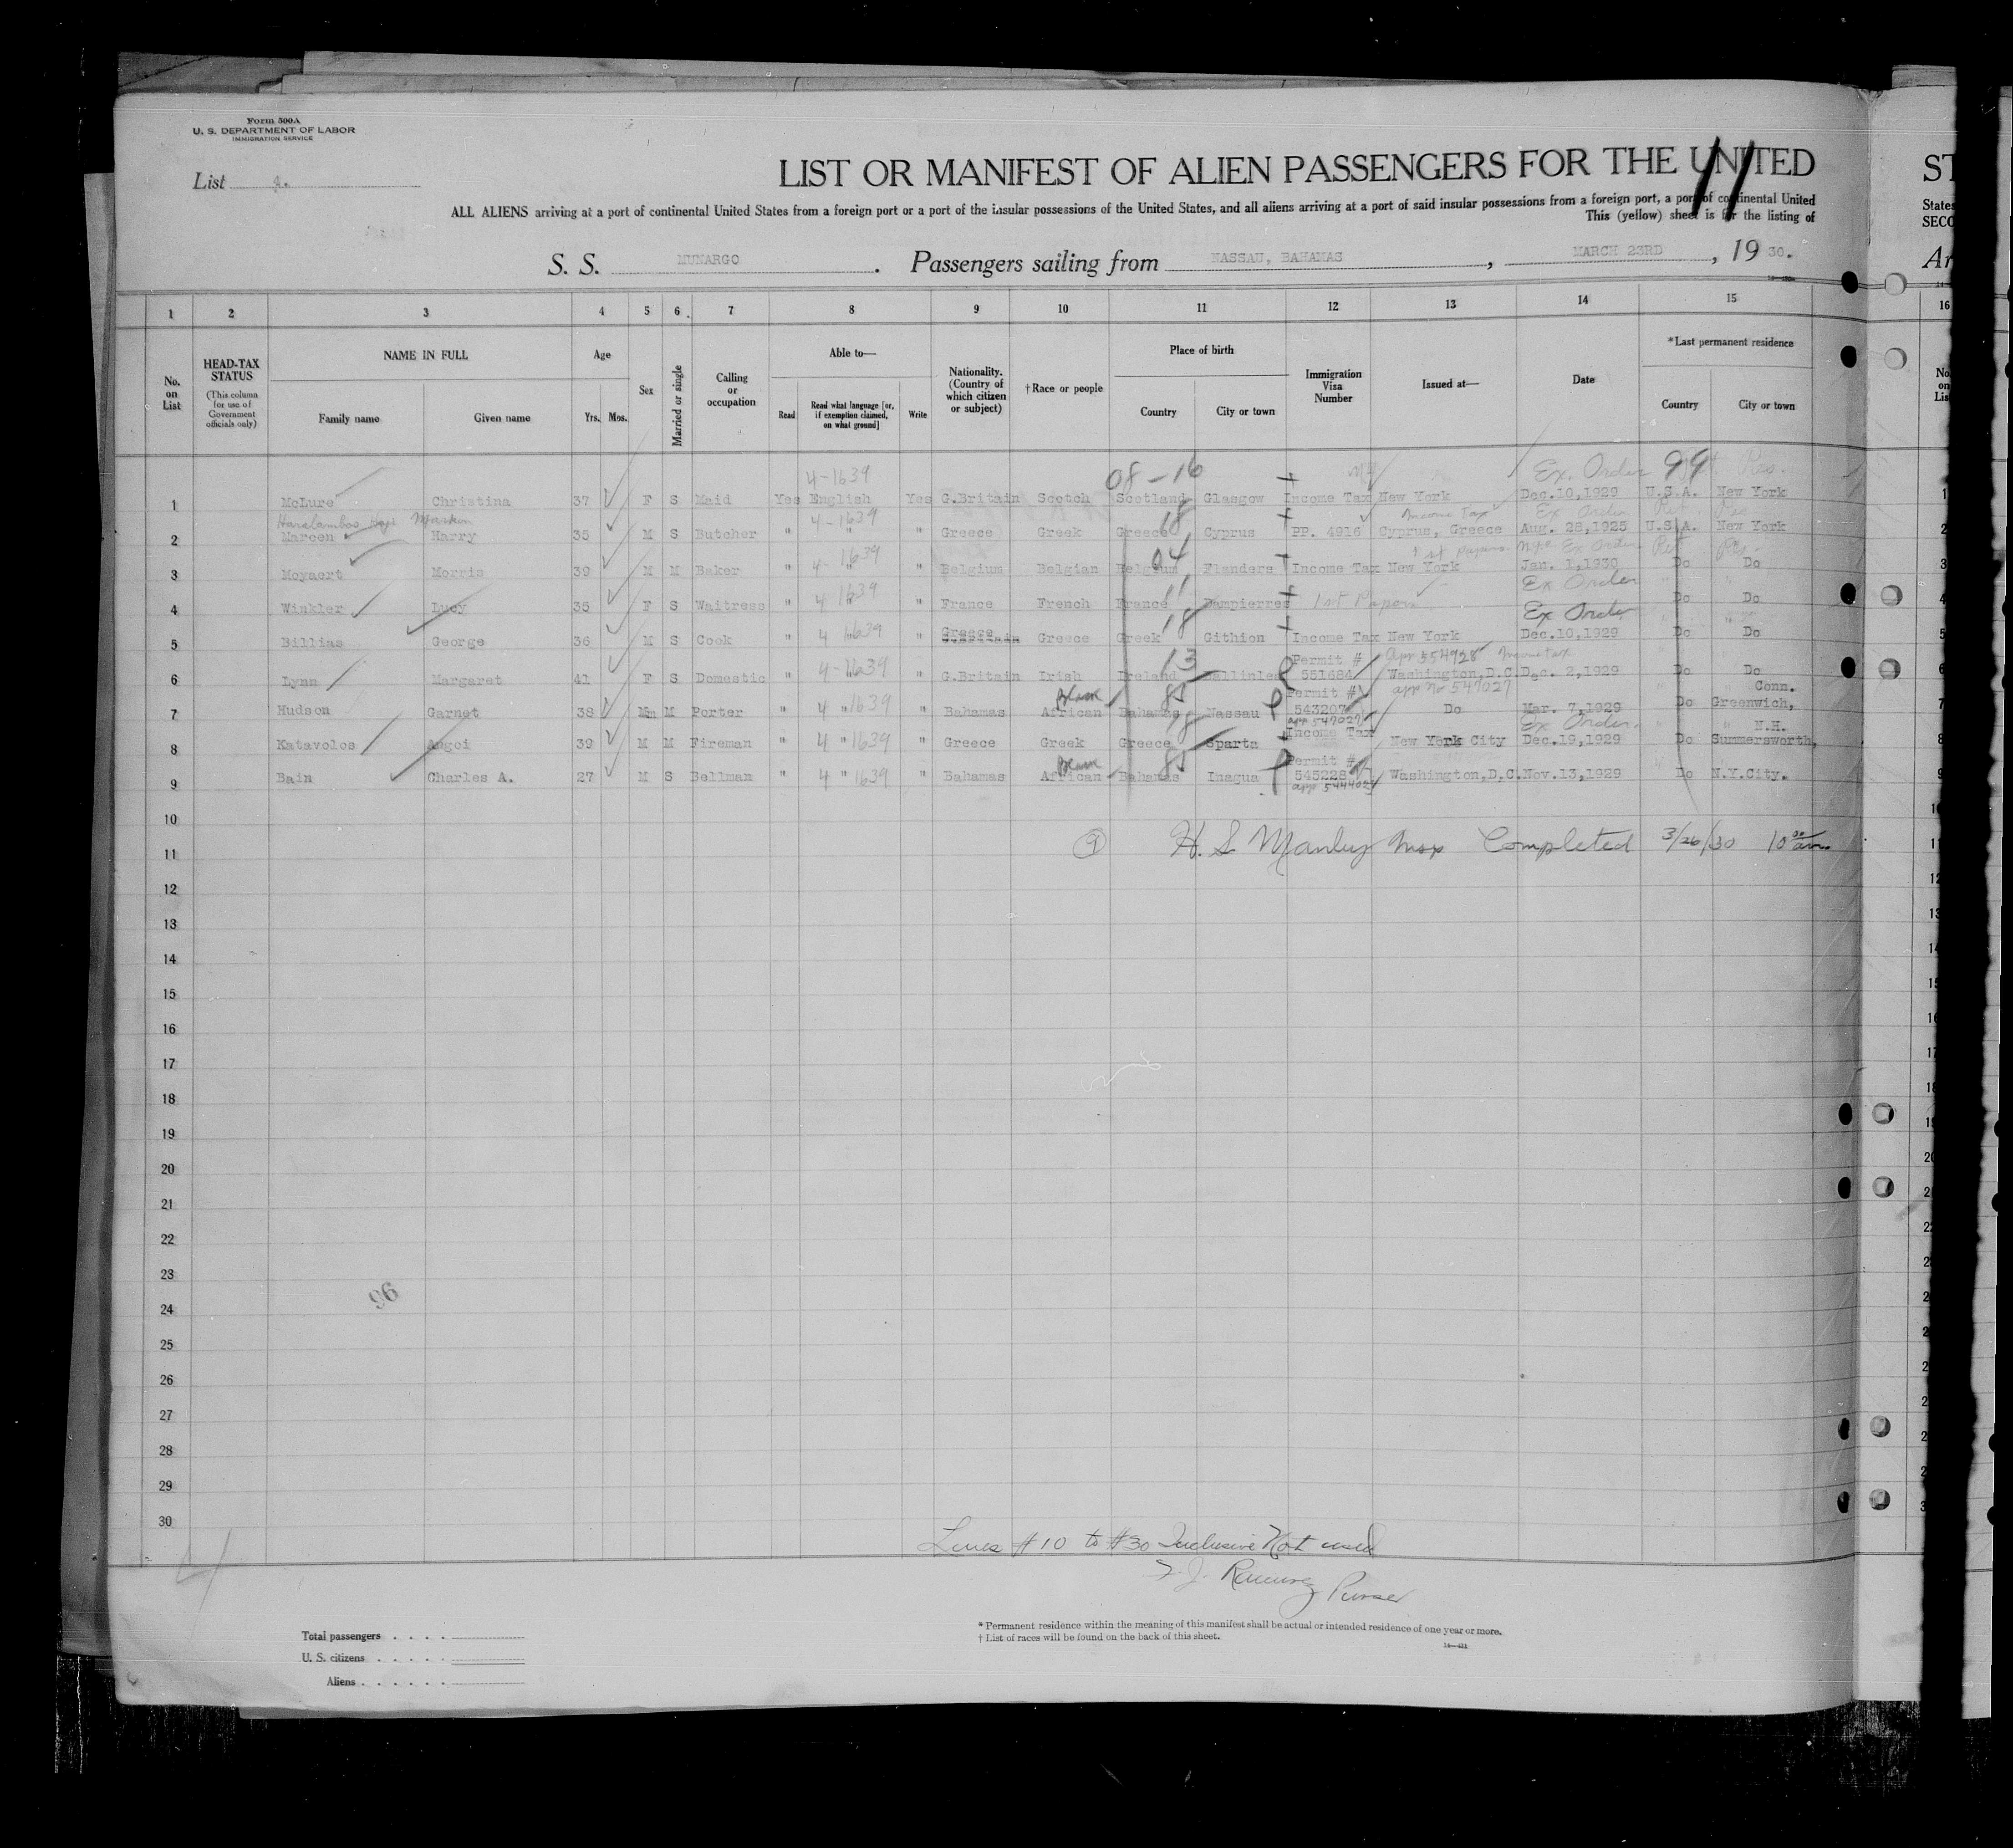 Form 500A
U. S. DEPARTMENT OF LABOR
IMMIGRATION SERVICE
List 4.
LIST OR MANIFEST OF ALIEN PASSENGERS FOR THE UNITED
ST
11
ALL ALIENS arriving at a port of continental United States from a foreign port or a port of the insular possessions of the United States, and all aliens arriving at a port of said insular possessions from a foreign port, a port of continental United
States
This (yellow) sheet is for the listing of
SECO
S. S. MUNARGO. Passengers sailing from NASSAU, BAHAMAS, MARCH 23RD, 19 30.
Ar
1 2 3 4 5 6 7 8 9 10 11 12 13 14 15 16
No. on List
HEAD-TAX STATUS (This column for use of Government officials only)
NAME IN FULL Family name Given name
Age Yrs. Mos.
Sex
Married or single
Calling or occupation
Able to— Read Read what language [or, if exemption claimed, on what ground] Write
Nationality. (Country of which citizen or subject)
† Race or people
Place of birth Country City or town
Immigration Visa Number
Issued at—
Date
* Last permanent residence Country City or town
4-1639 08-16 Ex. Order 99 Res.
1 McLure Christina 37 F S Maid Yes English Yes G.Britain Scotch Scotland Glasgow Income Tax New York Dec.10,1929 U.S.A. New York
Haralambos 4-1639 18 Income Tax Ex Order
2 Marcen Harry 35 M S Butcher " " " Greece Greek Greece Cyprus PP. 4916 Cyprus, Greece Aug. 28,1925 U.S.A. New York
4- 1639 04 1st papers Ex Order
3 Moyaert Morris 39 M M Baker " " " Belgium Belgian Belgium Flanders Income Tax New York Jan. 1,1930 Do Do
4 1639 11 Ex Order
4 Winkler Lucy 35 F S Waitress " " " France French France Dampierres 1st Papers Do Do
4 1639 18 Ex Order
5 Billias George 36 M S Cook " " " Greece G.Britain Greece Greek Githion Income Tax New York Dec.10,1929 Do Do
4-1639 13 Permit # App 554928 Income tax
6 Lynn Margaret 41 F S Domestic " " " G.Britain Irish Ireland Income 551684 Washington,D.C. Dec. 2,1929 Do Do
4 1639 Black 85 Permit # app no 547027 Conn.
7 Hudson Garnet 38 M M Porter " " " Bahamas African Bahamas Nassau 543207 Do Mar. 7,1929 Do Greenwich,
app 547027 Income Tax Ex Order. N.H.
8 Katavolos Angei 39 M M Fireman " 4 " 1639 " Greece Greek Greece 18 Sparta New York City Dec.19,1929 Do Summersworth,
Black 85 Permit #
9 Bain Charles A. 27 M S Bellman " 4 " 1639 " Bahamas African Bahamas Inagua 545228 Washington,D.C. Nov.13,1929 Do N.Y.City.
10
11 9 H. S. Manley Insp Completed 3/26/30 10 00 am
12
13
14
15
16
17
18
19
20
21
22
23
96
24
25
26
27
28
29
30
Lines #10 to #30 Inclusive Not used
Purser
4
Total passengers
U. S. citizens
Aliens
* Permanent residence within the meaning of this manifest shall be actual or intended residence of one year or more.
† List of races will be found on the back of this sheet.